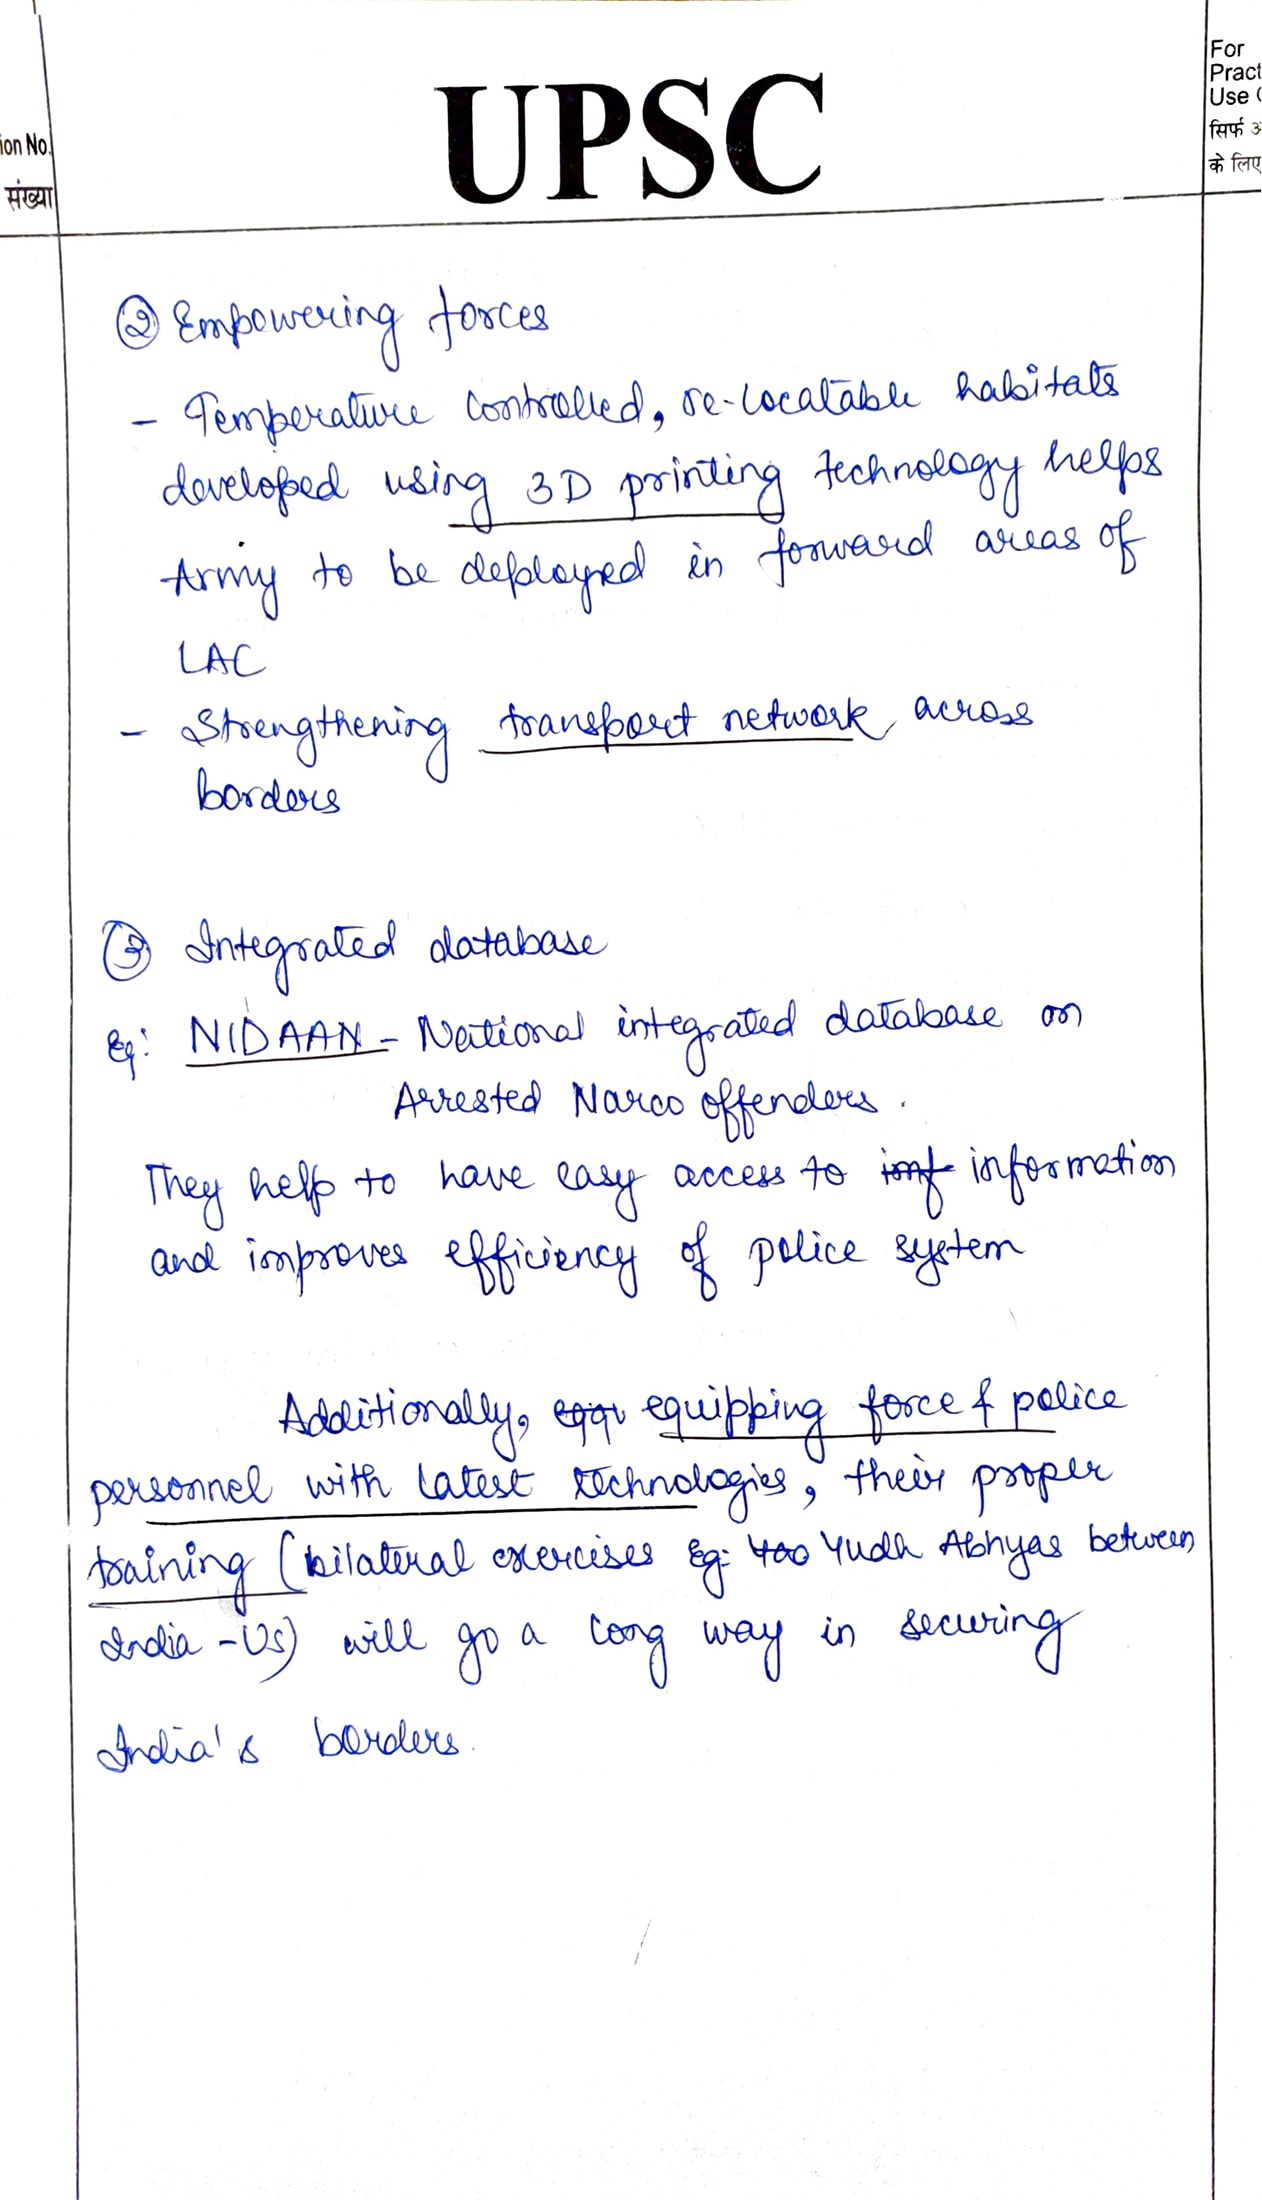 UPSC
For
Pract
Use
ion No.
संख्या
सिर्फ
के लिए
② Empowering forces
- Temperature controlled, re-locatable habitats
developed using 3D printing technology helps
Army to be deployed in forward areas of
LAC
- Strengthening transport network across
borders
③ Integrated database
Eg: NIDAAN - National integrated database on
Arrested Narco offenders.
They help to have easy access to imf information
and improves efficiency of police system
Additionally, equipping force & police
personnel with latest technologies, their proper
training (bilateral exercises Eg: Yudh Abhyas between
India - US) will go a long way in securing
India's borders.